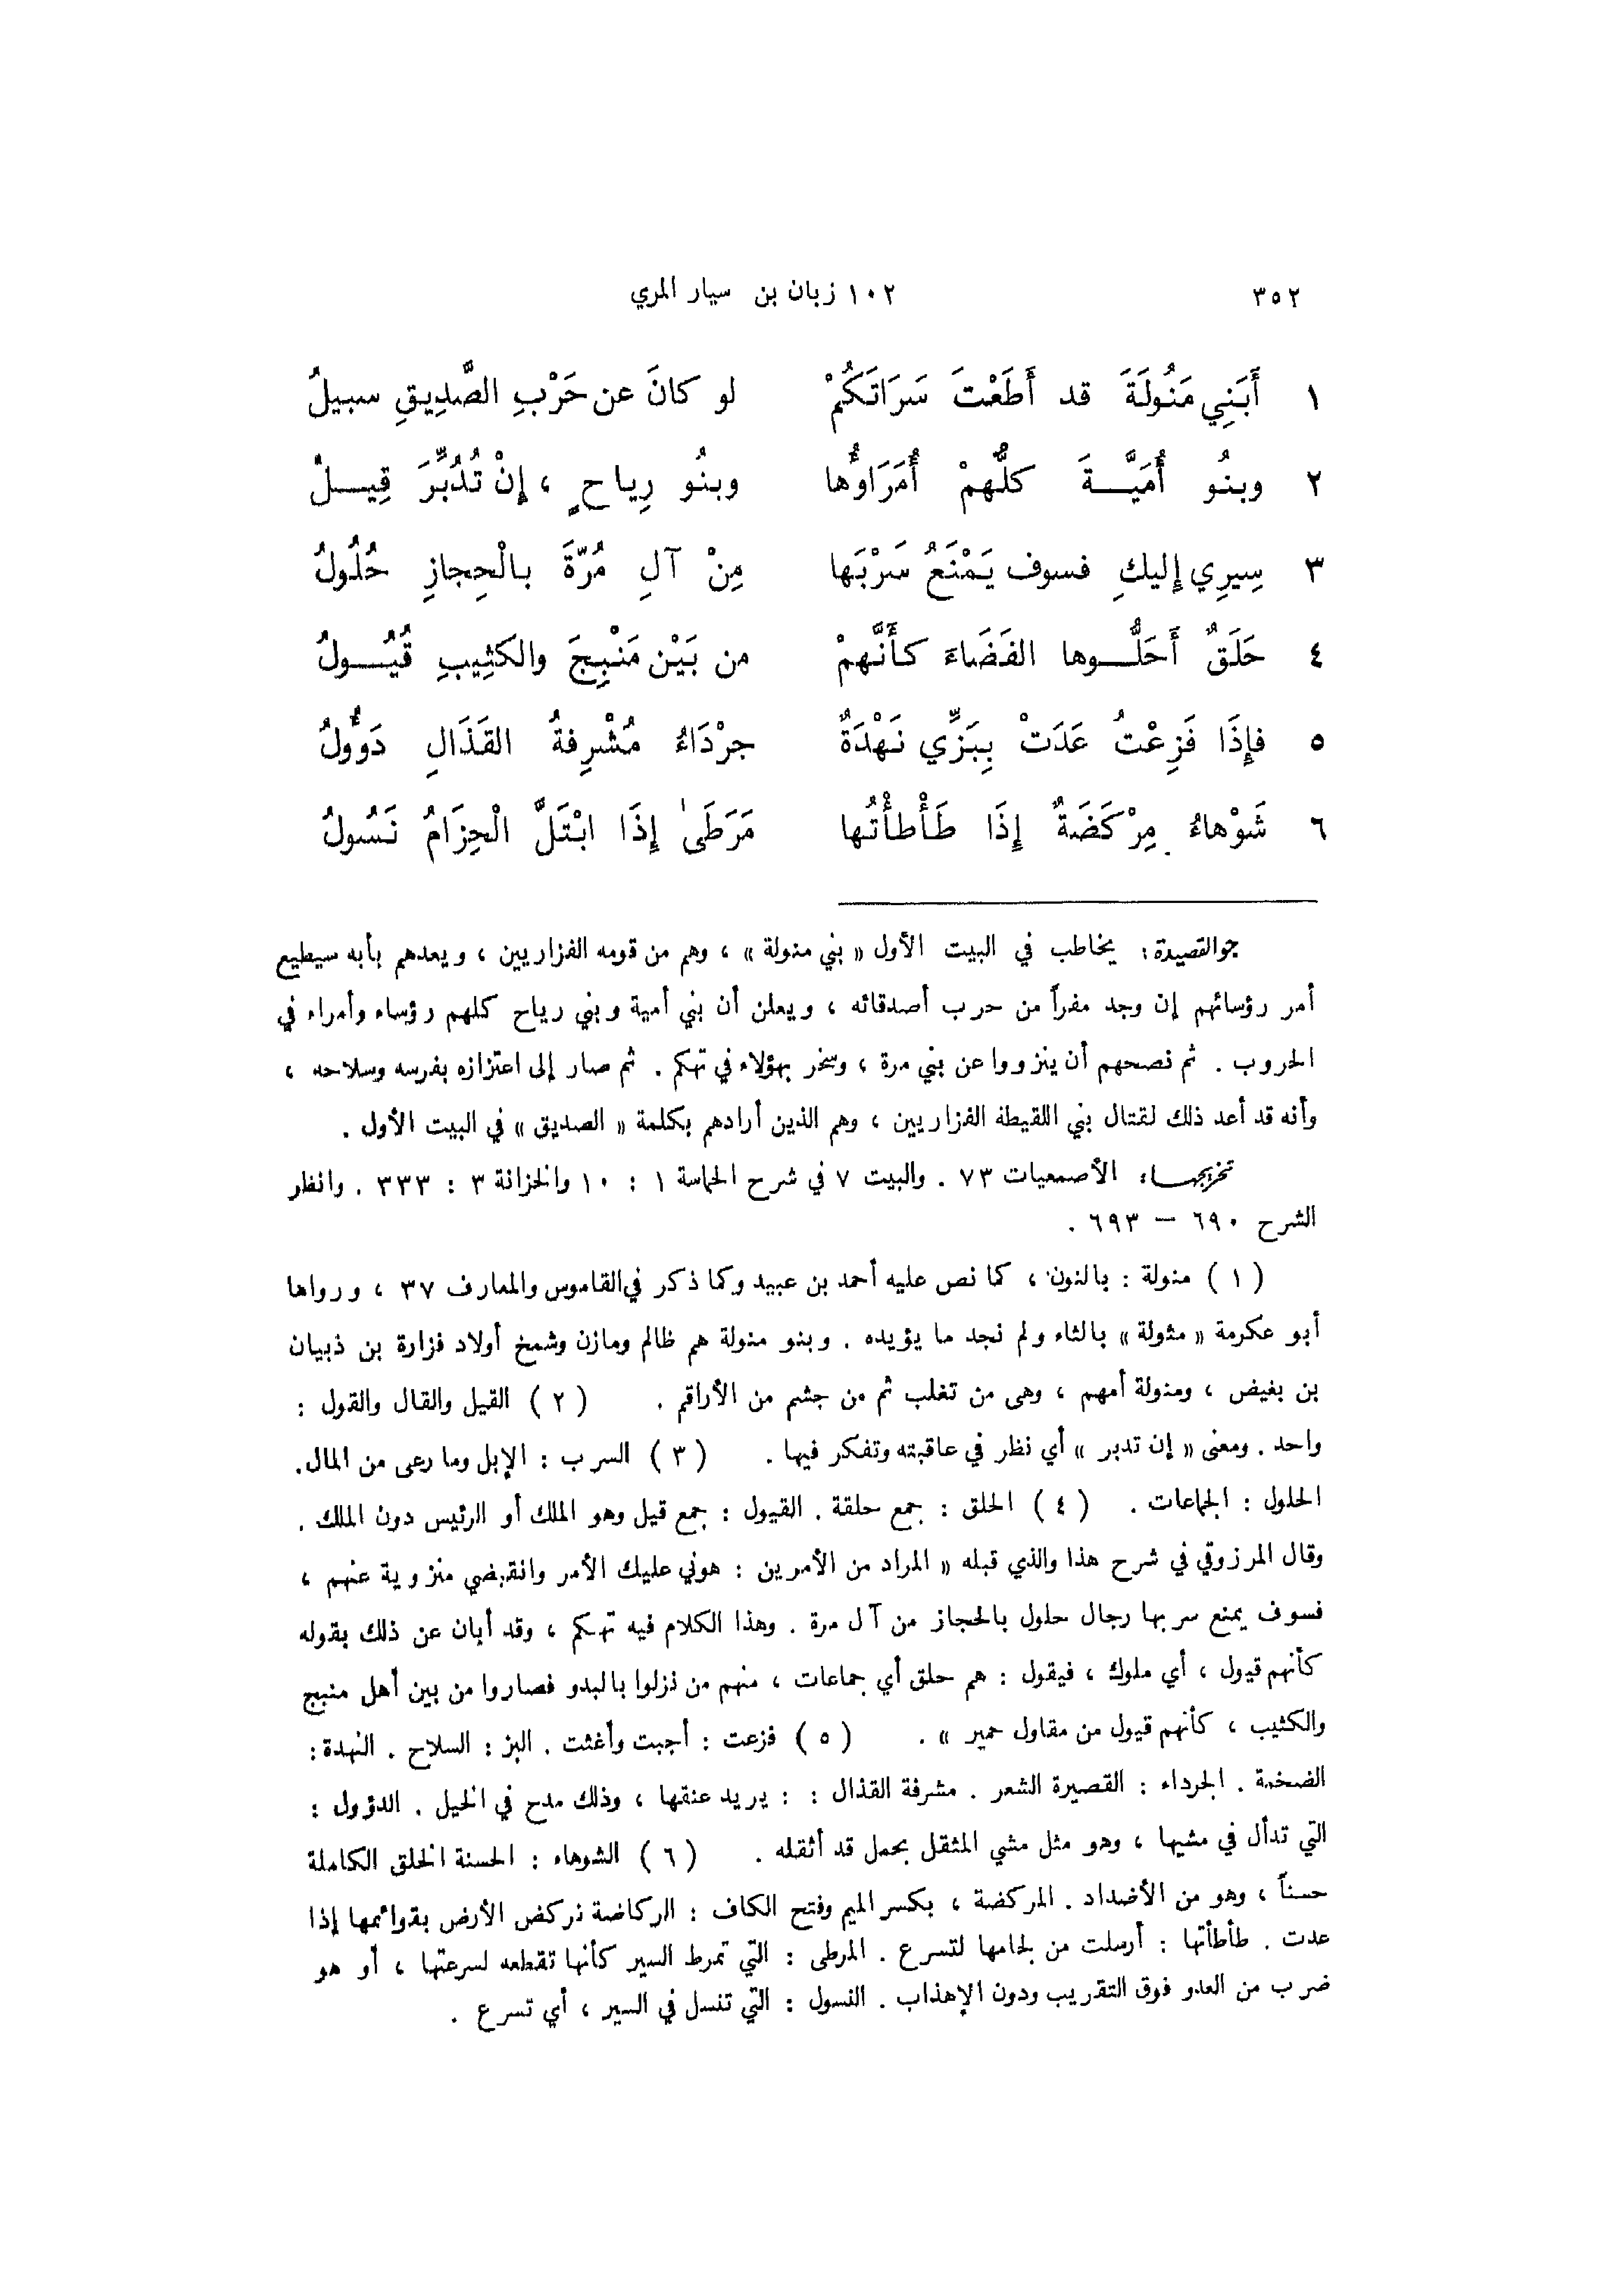 ٣٥٢ ١٠٢ زبان بن سيار المري
١ أَبَنِي مَنُولَةَ قد أَطَعْتَ سَرَاتَكُمْ لو كانَ عن حَرْبِ الصَّدِيقِ سبيلُ
٢ وبنُو أُمَيَّةَ كلُّهمْ أُمَرَاوُها وبنُو رِياحٍ ، إِنْ تُدُبِّرَ قِيلُ
٣ سِيرِي إِليكِ فسوف يَمْنَعُ سَرْبَها مِنْ آلِ مُرَّةَ بالْحِجازِ حُلُولُ
٤ حَلَقٌ أَحَلُّوها الفَضَاءَ كأَنَّهمْ من بَيْن مَنْبِجَ والكَثِيبِ قُيُولُ
٥ فإِذَا فَزِعْتُ عَدَتْ بِبَزِّي نَهْدَةٌ جرْدَاءُ مُشْرِفةُ القَذَالِ دَوُّولُ
٦ شَوْهاءُ مِرْكَضَةٌ إِذَا طَأْطأْتُها مَرَطَىٰ إِذَا ابْتَلَّ الْحِزَامُ نَسُولُ
جو القصيدة : يخاطب في البيت الأول « بني منولة » ، وهم من قومه الفزاريين ، ويعدهم بأبه سيطيع
أمر رؤسائهم إن وجد مفراً من حرب أصدقائه ، ويعلن أن بني أمية وبني رياح كلهم رؤساء وأمراء في
الحروب . ثم نصحهم أن ينزووا عن بني مرة ، وسخر بهؤلاء في تهكم . ثم صار إلى اعتزازه بفرسه وسلاحه ،
وأنه قد أعد ذلك لقتال بني اللقيطة الفزاريين ، وهم الذين أرادهم بكلمة « الصديق » في البيت الأول .
تخريجها : الأصمعيات ٧٣ . والبيت ٧ في شرح الحماسة ١ : ١٠ والخزانة ٣ : ٣٣٣ . وانظر
الشرح ٦٩٠ — ٦٩٣ .
( ١ ) منولة : بالنون ، كما نص عليه أحمد بن عبيد وكما ذكر في القاموس والمعارف ٣٧ ، ورواها
أبو عكرمة « مثولة » بالثاء ولم نجد ما يؤيده . وبنو منولة هم ظالم ومازن وشمخ أولاد فزارة بن ذبيان
بن بغيض ، ومنولة أمهم ، وهى من تغلب ثم من جشم من الأراقم . ( ٢ ) القيل والقال والقول :
واحد . ومعنى « إن تدبر » أي نظر في عاقبته وتفكر فيها . ( ٣ ) السرب : الإبل وما رعى من المال.
الحلول : الجماعات . ( ٤ ) الحلق : جمع حلقة . القيول : جمع قيل وهو الملك أو الرئيس دون الملك .
وقال المرزوقي في شرح هذا والذي قبله « المراد من الأمرين : هوني عليك الأمر وانقبضي منزوية عنهم ،
فسوف يمنع سربها رجال حلول بالحجاز من آل مرة . وهذا الكلام فيه تهكم ، وقد أبان عن ذلك بقوله
كأنهم قيول ، أي ملوك ، فيقول : هم حلق أي جماعات ، منهم من نزلوا بالبدو فصاروا من بين أهل منبج
والكثيب ، كأنهم قيول من مقاول حمير » . ( ٥ ) فزعت : أجبت وأغثت . البز : السلاح . النهدة :
الضخمة . الجرداء : القصيرة الشعر . مشرفة القذال : : يريد عنقها ، وذلك مدح في الخيل . الدؤول :
التي تدأل في مشيها ، وهو مثل مشي المثقل بحمل قد أثقله . ( ٦ ) الشوهاء : الحسنة الخلق الكاملة
حسناً ، وهو من الأضداد . المركضة ، بكسر الميم وفتح الكاف : الركاضة تركض الأرض بقوائمها إذا
عدت . طأطأتها : أرسلت من لجامها لتسرع . المرطى : التي تمرط السير كأنها تقطعه لسرعتها ، أو هو
ضرب من العدو فوق التقريب ودون الإهذاب . النسول : التي تنسل في السير ، أي تسرع .